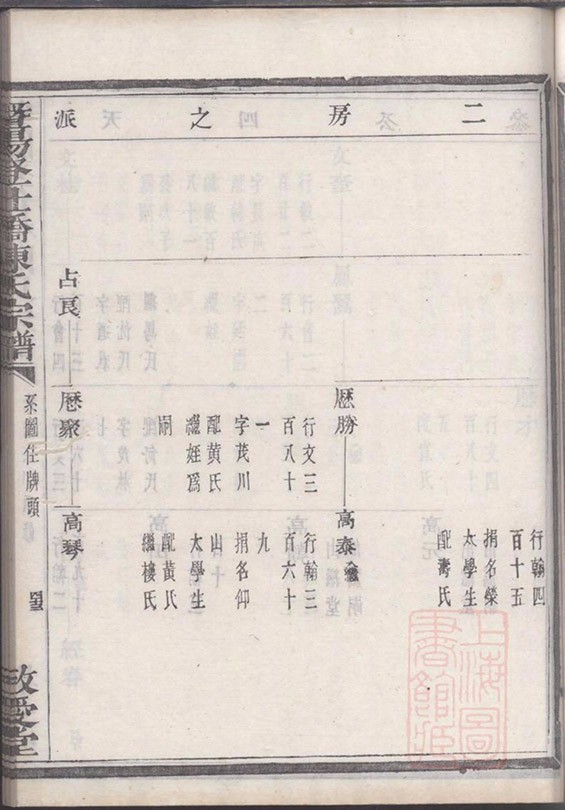 二房之派
行翰四
百十五
捐名榮
太學生
配壽氏
厯勝
高泰繼
行文三
百八十
一
字茂川
配黄氏
繼姪爲
嗣
行翰三
百六十
九
捐名仰
山
太學生
配黄氏
繼樓氏
占良
厯聚
高琴
暨陽登仕橋陳氏宗譜
系圖住牌頭
敬愛堂
上海圖
書館藏